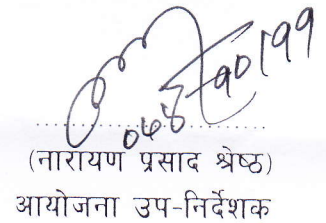 (नारायण प्रसाद श्रेष्ठ)
आयोजना उप-निर्देशक